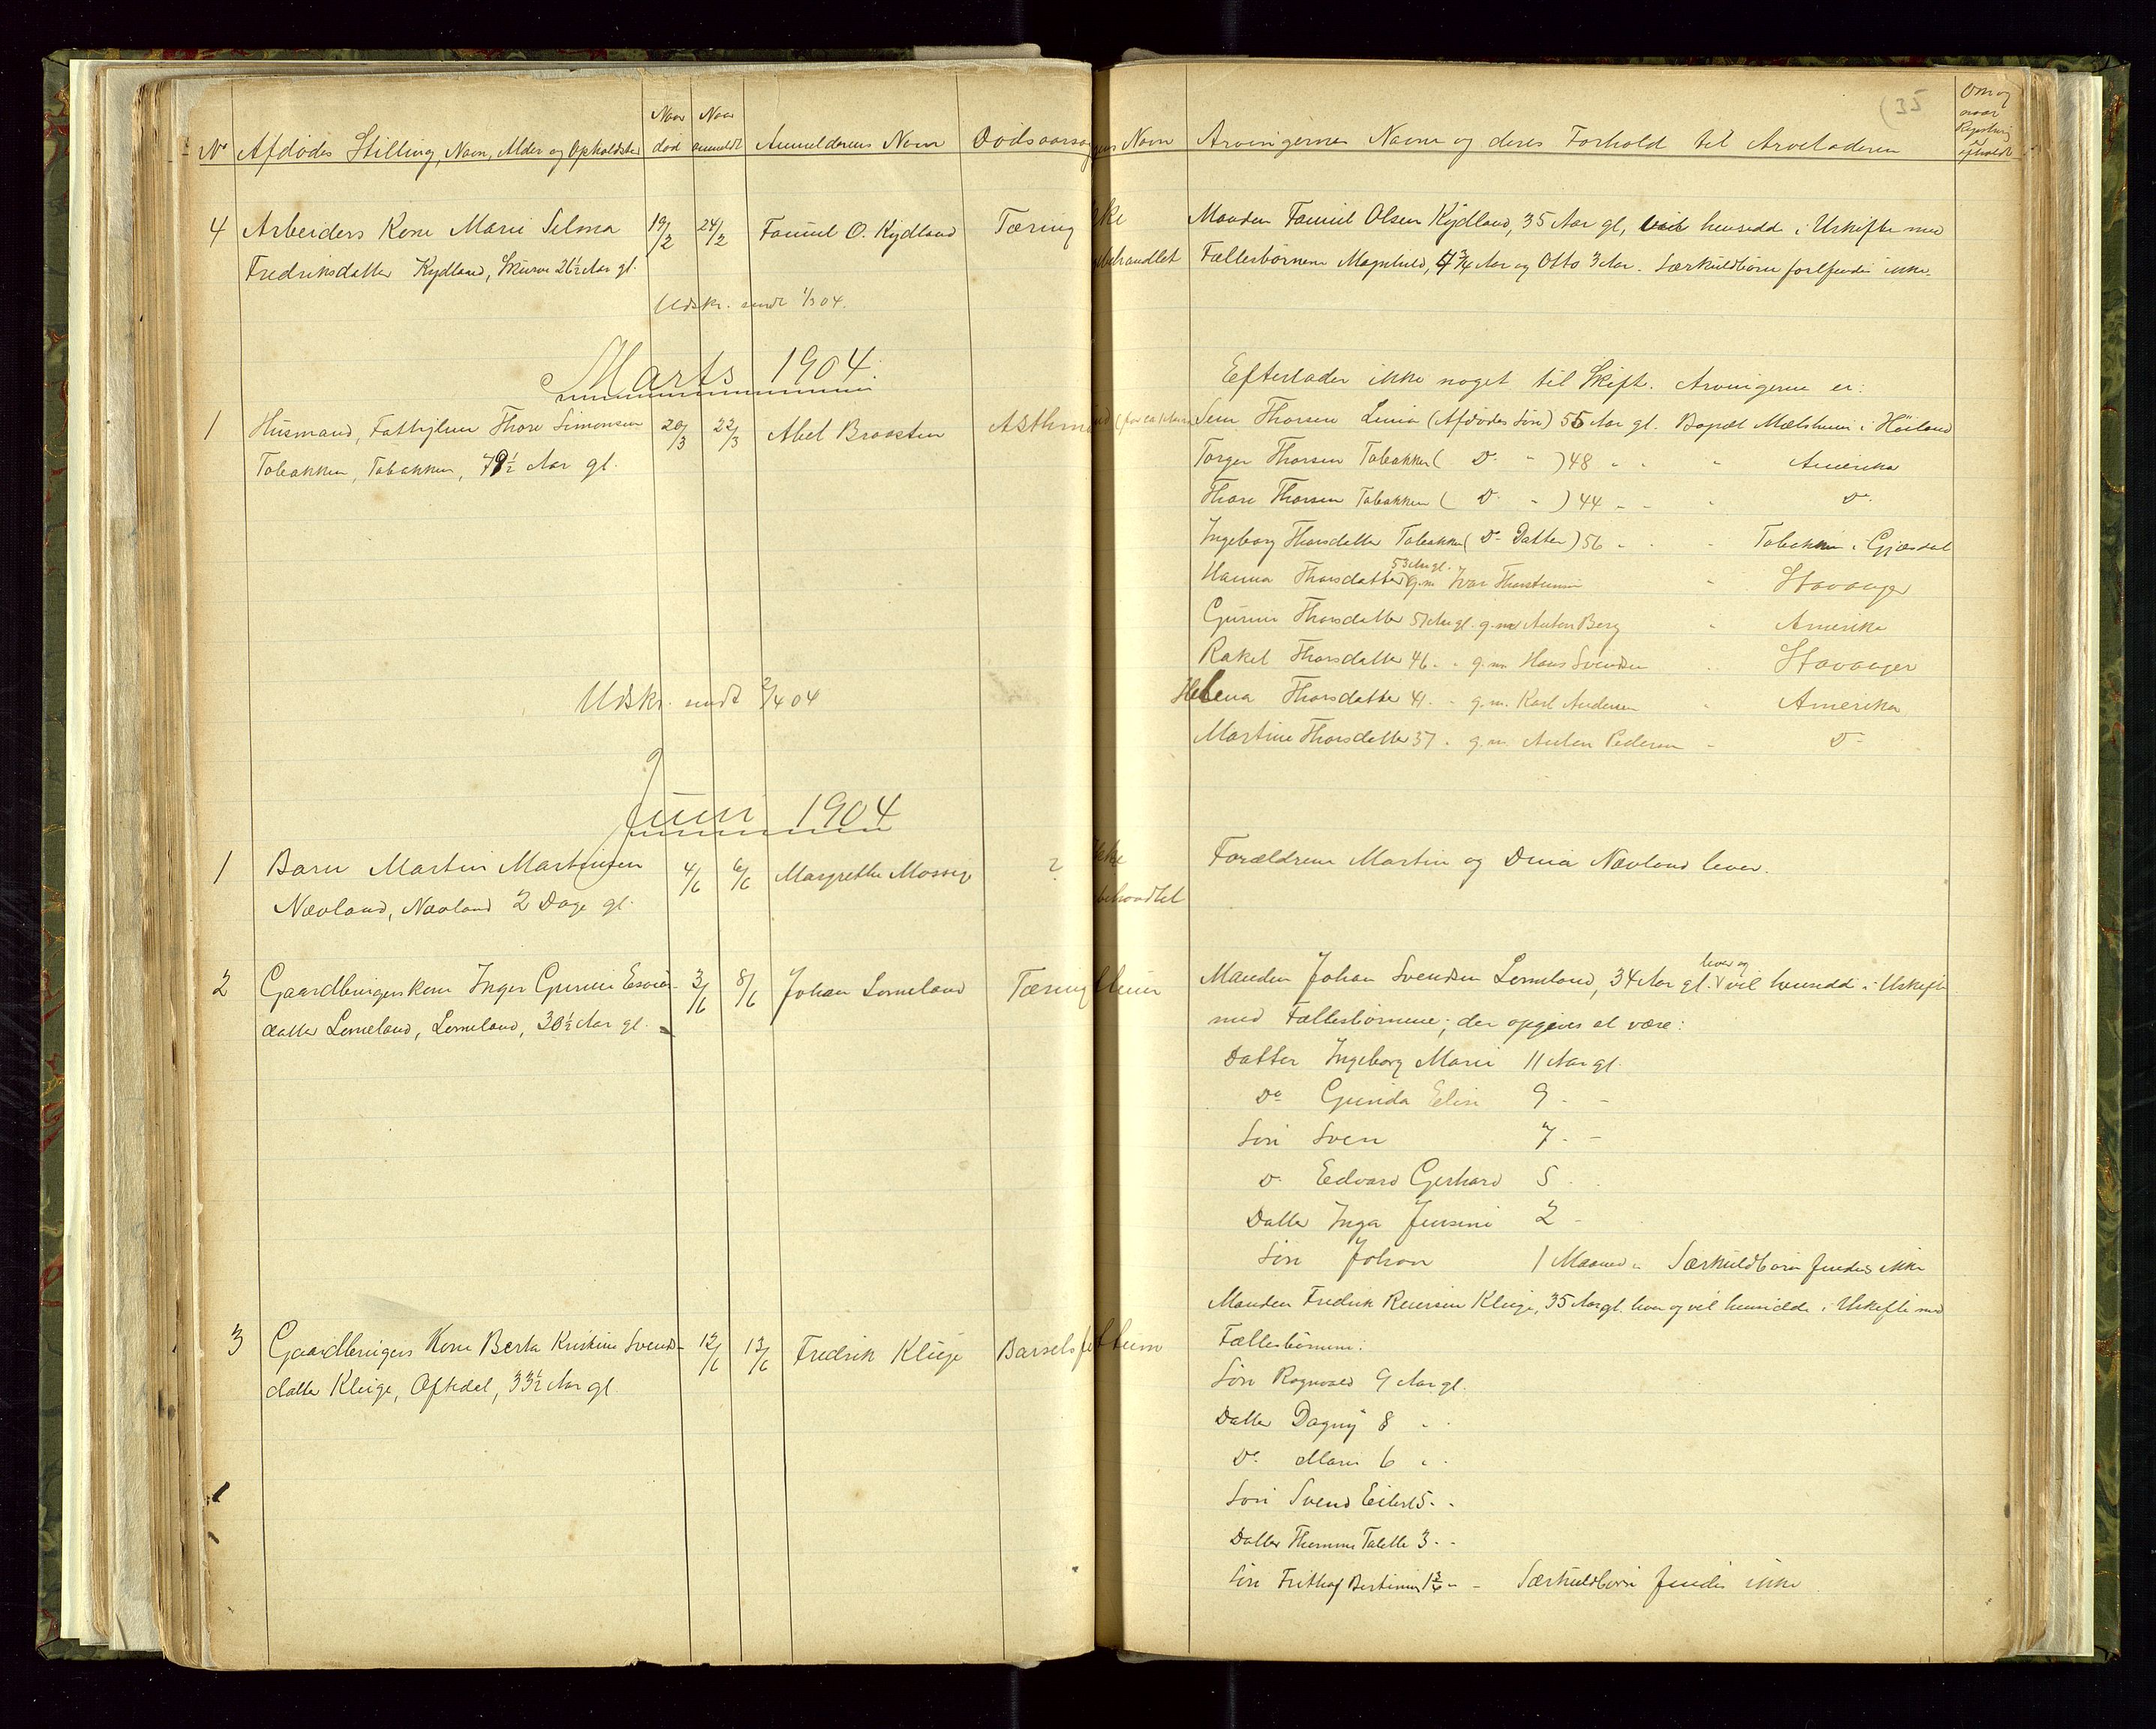 No Afdødes Stilling, Navn, Alder og Opholdsted
Naar død
Naar anmeldt
Anmelderens Navn
Dødsaarsag
4 Arbeiders Kone Marie Selma 19/2 24/2 Samuel O. Kydland Tæring
Fredriksdatter Kydland, Skurve 26½ Aar gl.
Udskr. sendt 1/3 04.
Marts 1904.
1 Husmand, Fattiglem Thore Simonsen 20/3 22/3 Abel Braasten Asthma
Tobakken, Tobakken, 79½ Aar gl.
Udskr. sendt 2/4 04
Juni 1904
1 Barn Martin Martinsen 4/6 6/6 Margrethe Mossig ?
Nævland, Nævland 2 Dage gl.
2 Gaardbrugerskone Inger Gurine 3/6 8/6 Johan Lomeland Tæring
datter Lomeland, Lomeland, 30½ Aar gl.
3 Gaardbrugers Kone Berta Kristine Svends- 12/6 13/6 Fredrik Kluge Barselsfe
datter Kluge, Oftedal, 33½ Aar gl.
(35
Navn
Arvingernes Navne og deres Forhold til Arveladeren
Om og naar Registrering er afholdt
Manden Samuel Olsen Kydland, 35 Aar gl, vil hensidde i Uskifte med
behandlet Fællesbørnene Magnhild, 4¾ Aar og Otto 3 Aar. Særkuldbørn forefindes ikke.
Efterlader ikke noget til Skifte. Arvingerne er:
Sem Thorsen Lima (Afdødes Søn) 55 Aar gl. Bopæl Mælsheim i Høiland
Torger Thorsen Tobakken ( Do " ) 48 " " " Amerika
Thore Thorsen Tobakken ( Do " ) 44 " " " Do
Ingeborg Thorsdatter Tobakken ( Do Datter ) 56 " " " Tobakken i Gjæsdal
Hanna Thorsdatter 53 Aar gl. g.m. Ivar Thorstensen " Stavanger
Gurine Thorsdatter 51 Aar gl. g.m. Anton Berg " Amerika
Rakel Thorsdatter 46 " " g.m. Hans Svendsen " Stavanger
Helena Thorsdatter 41 " " g.m. Karl Andersen " Amerika
Martine Thorsdatter 37 " g.m. Anton Pedersen " Do
Ikke
behandlet
Forældrene Martin og Dina Nævland lever.
Manden Johan Svendsen Lomeland, 34 Aar gl. lever og vil hensidde i Uskifte
med Fællesbørnene; der opgives at være:
Datter Ingeborg Marie 11 Aar gl.
Do Gunda Elise 9 " "
Søn Sven 7 " "
Do Edvard Gerhard 5 "
Datter Inga Jensine 2 "
Søn Johan 1 Maaned " Særkuldbørn findes ikke
Manden Fredrik Reiersen Kluge, 35 Aar gl. lever og vil hensidde i Uskifte med
Fællesbørnene:
Søn Ragnvald 9 Aar gl.
Datter Dagny 8 " "
Do Marie 6 " "
Søn Svend Eilert 5 " "
Datter Thomine Talette 3 " "
Søn Frithof Bertinius 1¾ " " Særkuldbørn findes ikke